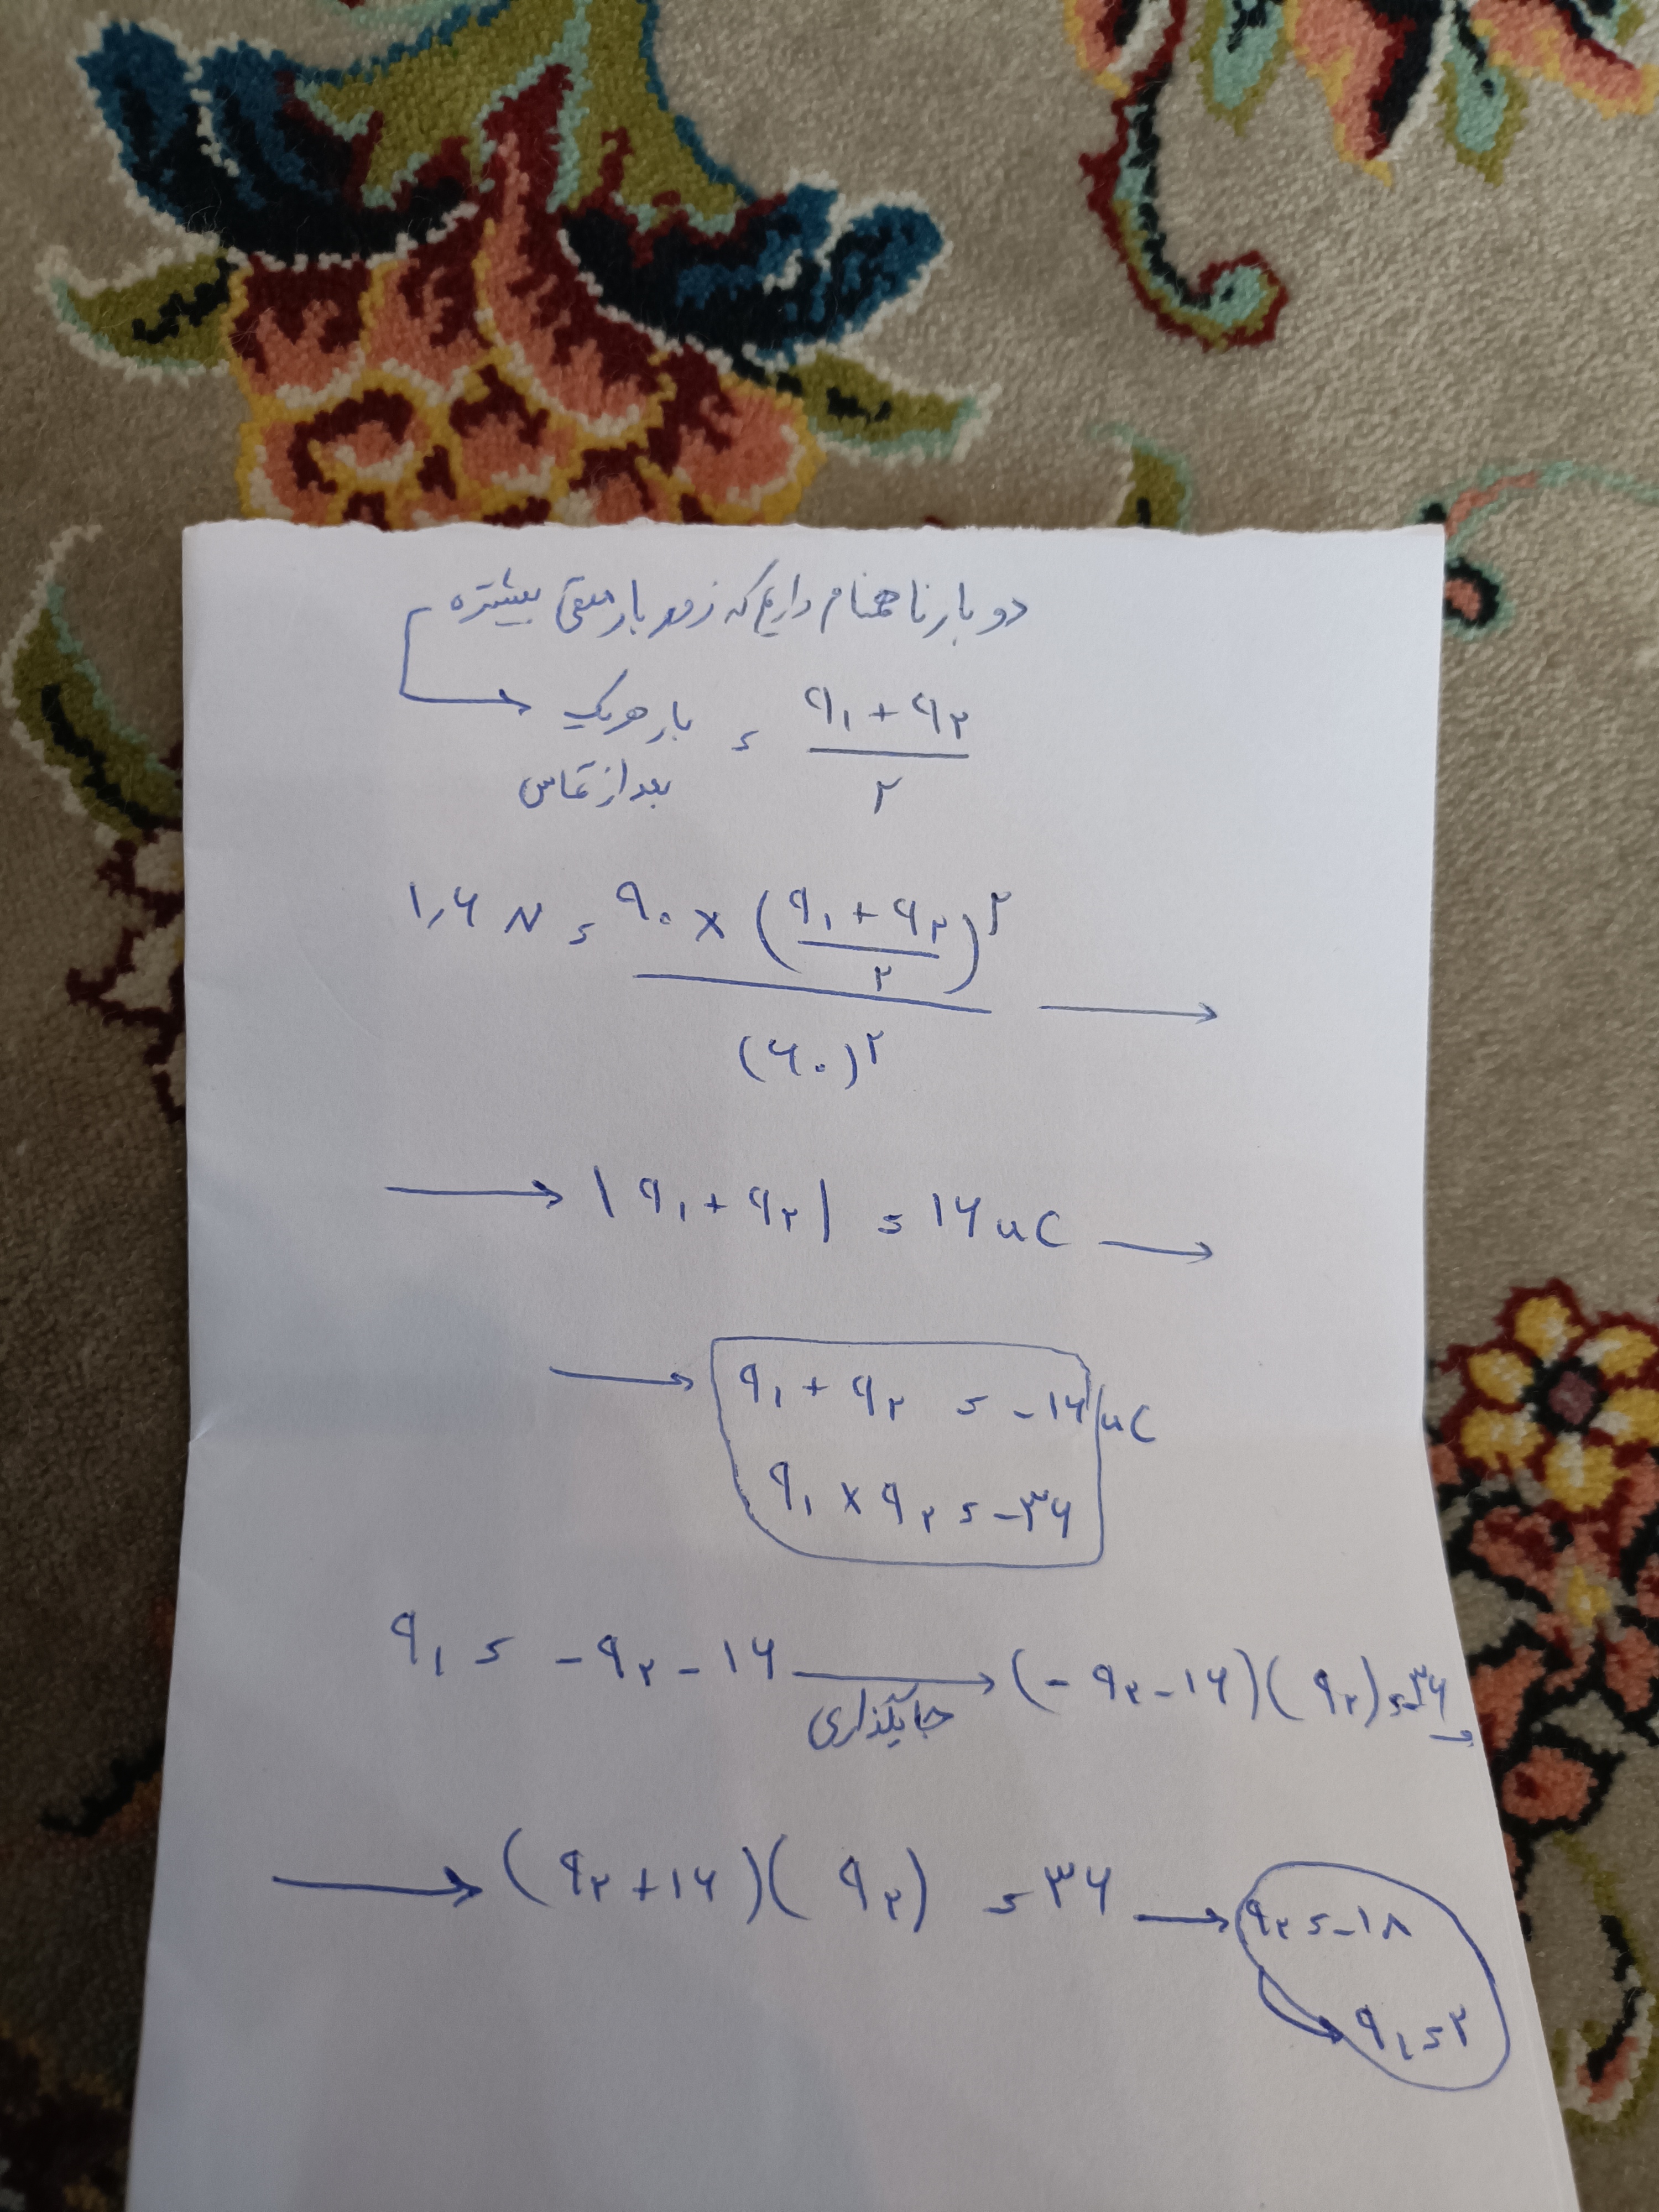 دو بار ناهمنام داریم که زور بار منفی بیشتره
بار هر یک بعد از تماس = (q₁ + q₂) / ۲
۱٫۶ N = ۹۰ × ((q₁ + q₂) / ۲)² / (۶۰)² →
→ |q₁ + q₂| = ۱۶ uC →
→ q₁ + q₂ = -۱۶ uC
q₁ × q₂ = -۳۶
q₁ = -q₂ - ۱۶ → جایگذاری (-q₂ - ۱۶)(q₂) = -۳۶ →
→ (q₂ + ۱۶)(q₂) = ۳۶ → q₂ = -۱۸
q₁ = ۲